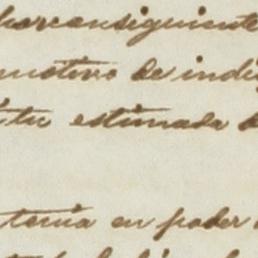 porconsiguiente
motivo de indi
tu estimada
tenia en poder